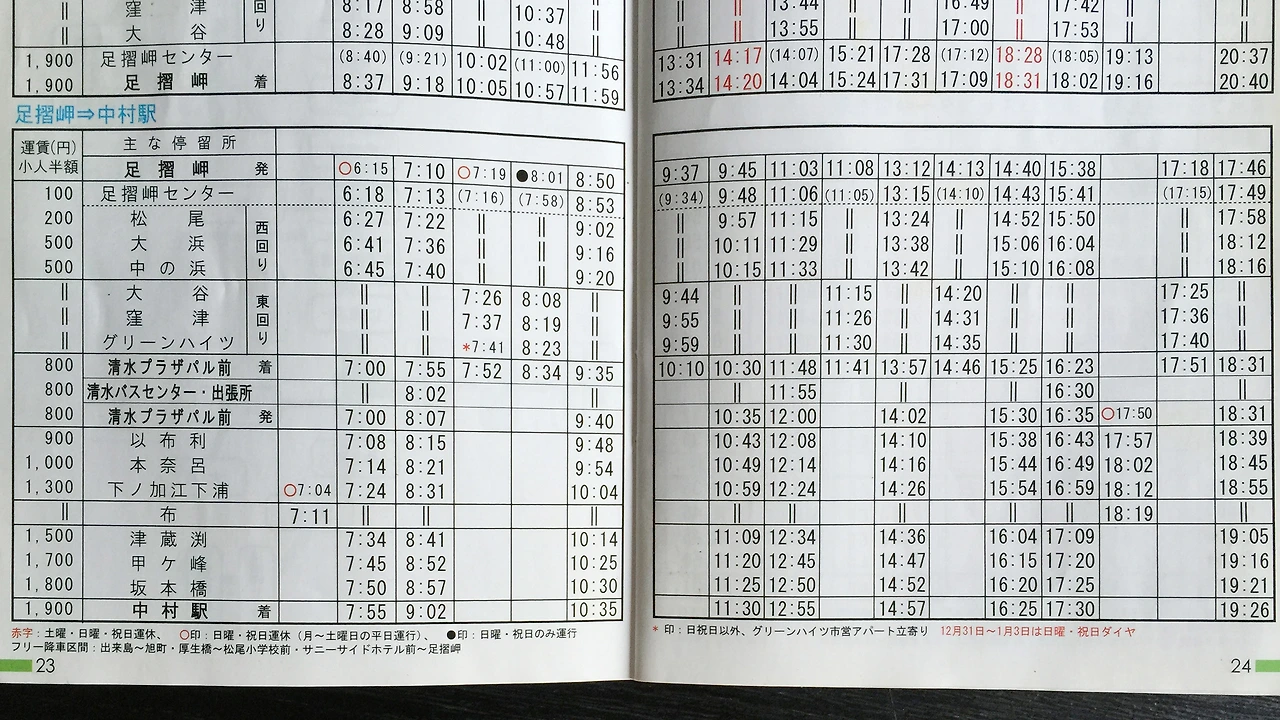 窪 津 回 8:17 8:58 ‖ 10:37 ‖ ‖ ‖ 13:44 ‖ ‖ 16:49 ‖ 17:42 ‖ ‖
‖ 大 谷 り 8:28 9:09 ‖ 10:48 ‖ ‖ ‖ 13:55 ‖ ‖ 17:00 ‖ 17:53 ‖ ‖
1,900 足摺岬センター (8:40) (9:21) 10:02 (11:00) 11:56 13:31 14:17 (14:07) 15:21 17:28 (17:12) 18:28 (18:05) 19:13 20:37
1,900 足摺岬 着 8:37 9:18 10:05 10:57 11:59 13:34 14:20 14:04 15:24 17:31 17:09 18:31 18:02 19:16 20:40
足摺岬⇒中村駅
運賃(円) 主な停留所
小人半額 足摺岬 発 ○6:15 7:10 ○7:19 ●8:01 8:50 9:37 9:45 11:03 11:08 13:12 14:13 14:40 15:38 17:18 17:46
100 足摺岬センター 6:18 7:13 (7:16) (7:58) 8:53 (9:34) 9:48 11:06 (11:05) 13:15 (14:10) 14:43 15:41 (17:15) 17:49
200 松尾 西回り 6:27 7:22 ‖ ‖ 9:02 ‖ 9:57 11:15 ‖ 13:24 ‖ 14:52 15:50 ‖ 17:58
500 大浜 6:41 7:36 ‖ ‖ 9:16 ‖ 10:11 11:29 ‖ 13:38 ‖ 15:06 16:04 ‖ 18:12
500 中の浜 6:45 7:40 ‖ ‖ 9:20 ‖ 10:15 11:33 ‖ 13:42 ‖ 15:10 16:08 ‖ 18:16
‖ 大谷 東回り ‖ ‖ 7:26 8:08 ‖ 9:44 ‖ ‖ 11:15 ‖ 14:20 ‖ ‖ 17:25 ‖
‖ 窪津 ‖ ‖ 7:37 8:19 ‖ 9:55 ‖ ‖ 11:26 ‖ 14:31 ‖ ‖ 17:36 ‖
‖ グリーンハイツ ‖ ‖ *7:41 8:23 ‖ 9:59 ‖ ‖ 11:30 ‖ 14:35 ‖ ‖ 17:40 ‖
800 清水プラザパル前 着 7:00 7:55 7:52 8:34 9:35 10:10 10:30 11:48 11:41 13:57 14:46 15:25 16:23 17:51 18:31
800 清水バスセンター・出張所 ‖ 8:02 ‖ ‖ 11:55 ‖ ‖ 16:30 ‖
800 清水プラザパル前 発 7:00 8:07 9:40 10:35 12:00 14:02 15:30 16:35 ○17:50 18:31
900 以布利 7:08 8:15 9:48 10:43 12:08 14:10 15:38 16:43 17:57 18:39
1,000 本奈呂 7:14 8:21 9:54 10:49 12:14 14:16 15:44 16:49 18:02 18:45
1,300 下ノ加江下浦 ○7:04 7:24 8:31 10:04 10:59 12:24 14:26 15:54 16:59 18:12 18:55
‖ 布 7:11 ‖ ‖ ‖ ‖ ‖ ‖ ‖ ‖ 18:19 ‖
1,500 津蔵渕 7:34 8:41 10:14 11:09 12:34 14:36 16:04 17:09 19:05
1,700 甲ケ峰 7:45 8:52 10:25 11:20 12:45 14:47 16:15 17:20 19:16
1,800 坂本橋 7:50 8:57 10:30 11:25 12:50 14:52 16:20 17:25 19:21
1,900 中村駅 着 7:55 9:02 10:35 11:30 12:55 14:57 16:25 17:30 19:26
赤字：土曜・日曜・祝日運休、 ○印：日曜・祝日運休（月～土曜日の平日運行）、 ●印：日曜・祝日のみ運行
フリー降車区間：出来島～旭町・厚生橋～松尾小学校前・サニーサイドホテル前～足摺岬
* 印：日祝日以外、グリーンハイツ市営アパート立寄り 12月31日～1月3日は日曜・祝日ダイヤ
23
24